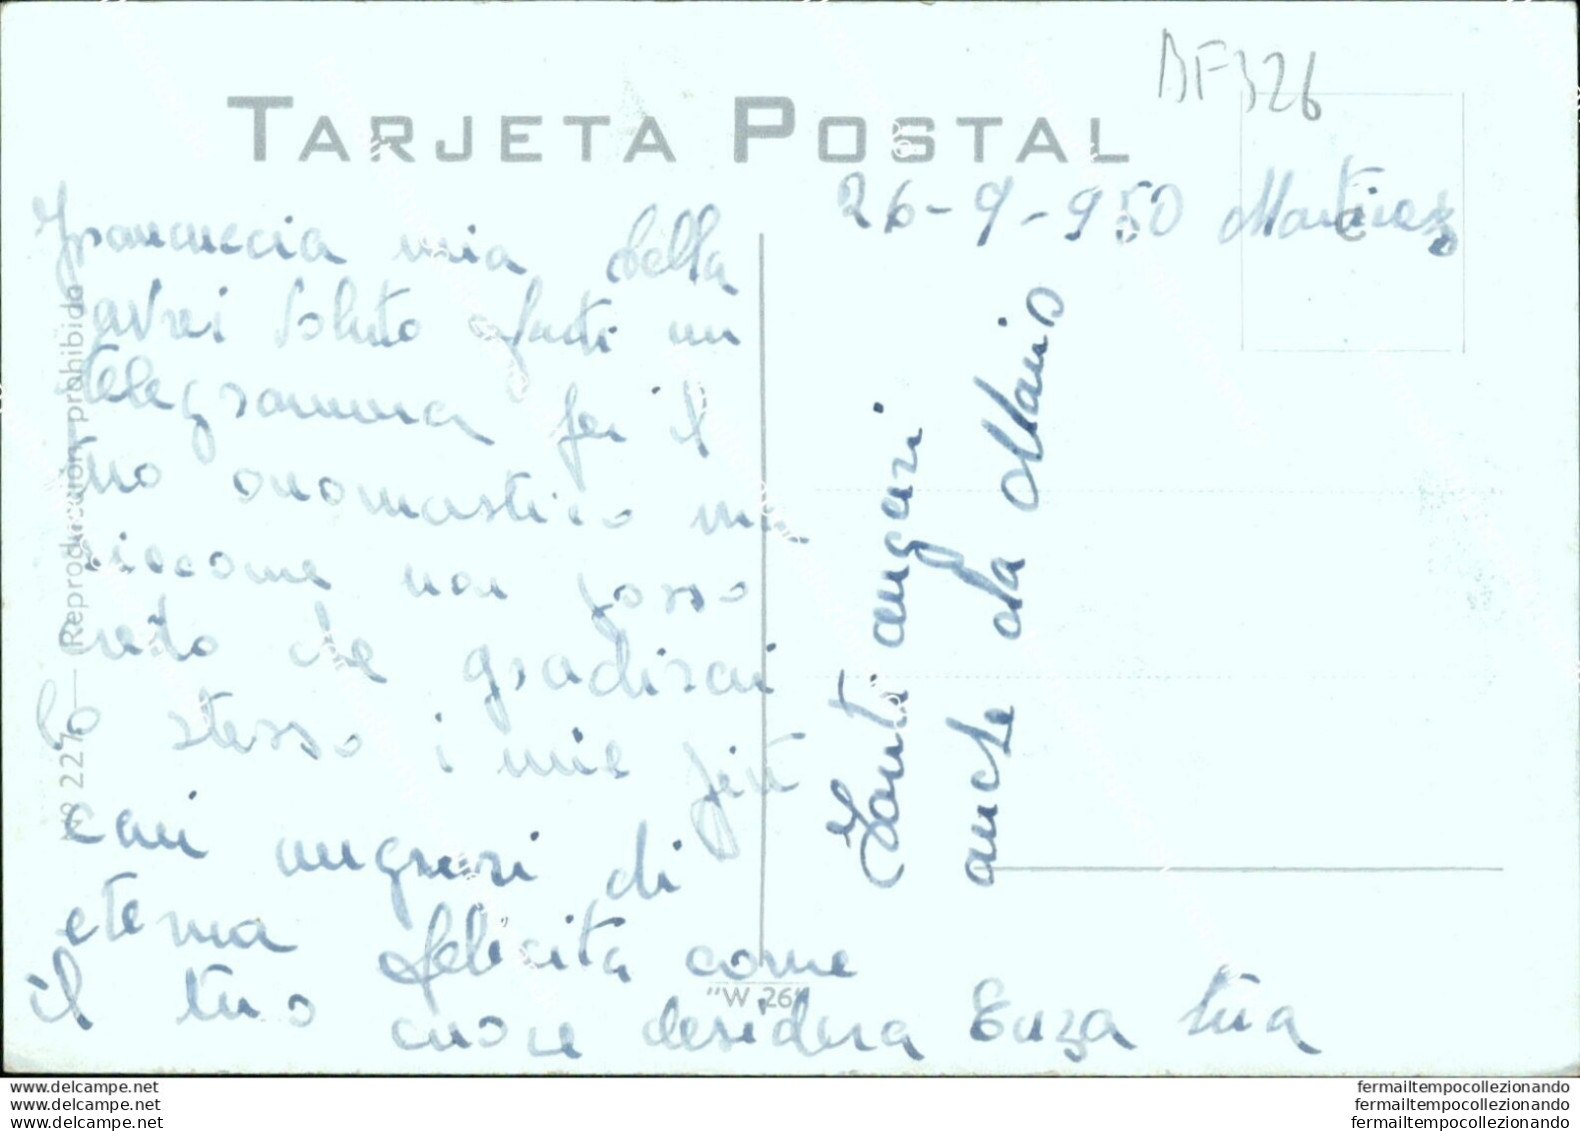 BF326
TARJETA POSTAL
26-9-950 Martinez
Francuccia mia bella
avrei voluto farti un
telegramma per il
tuo onomastico ma
siccome non posso
credo che gradirai
lo stesso i miei più
cari auguri di
eterna felicità come
il tuo cuore desidera Enza tua
Tanti auguri
anche da Mario
Reproducción prohibida
"W 26"
www.delcampe.net
www.delcampe.net
www.delcampe.net
fermailtempocollezionando
fermailtempocollezionando
fermailtempocollezionando